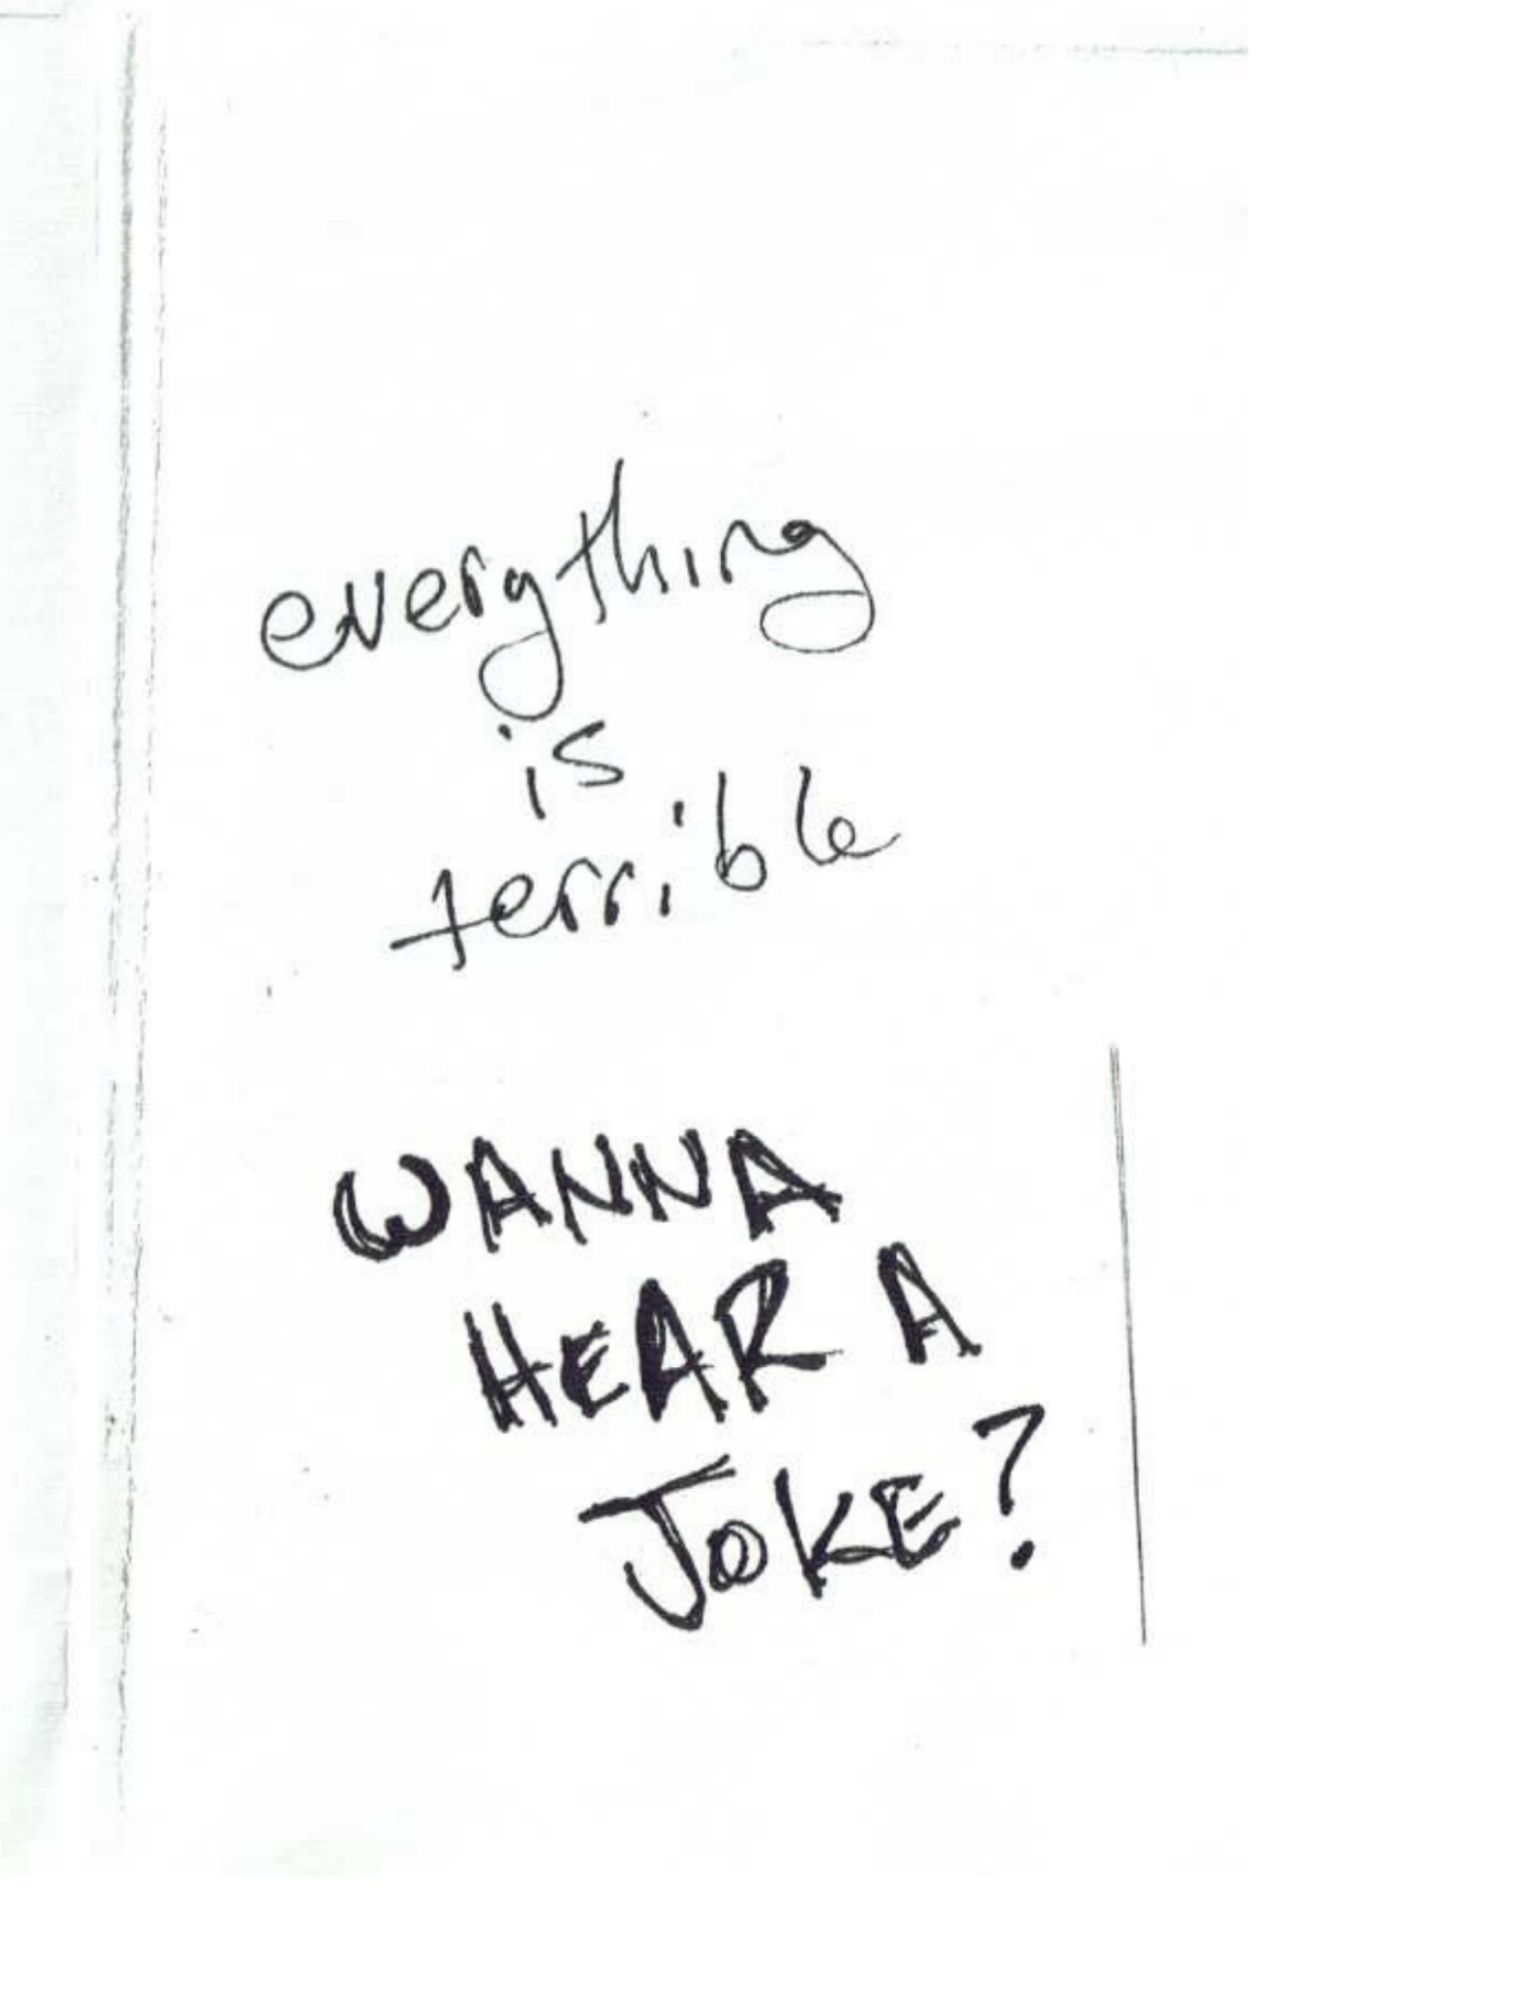 everything
is
terrible
WANNA
HEAR A
JOKE?